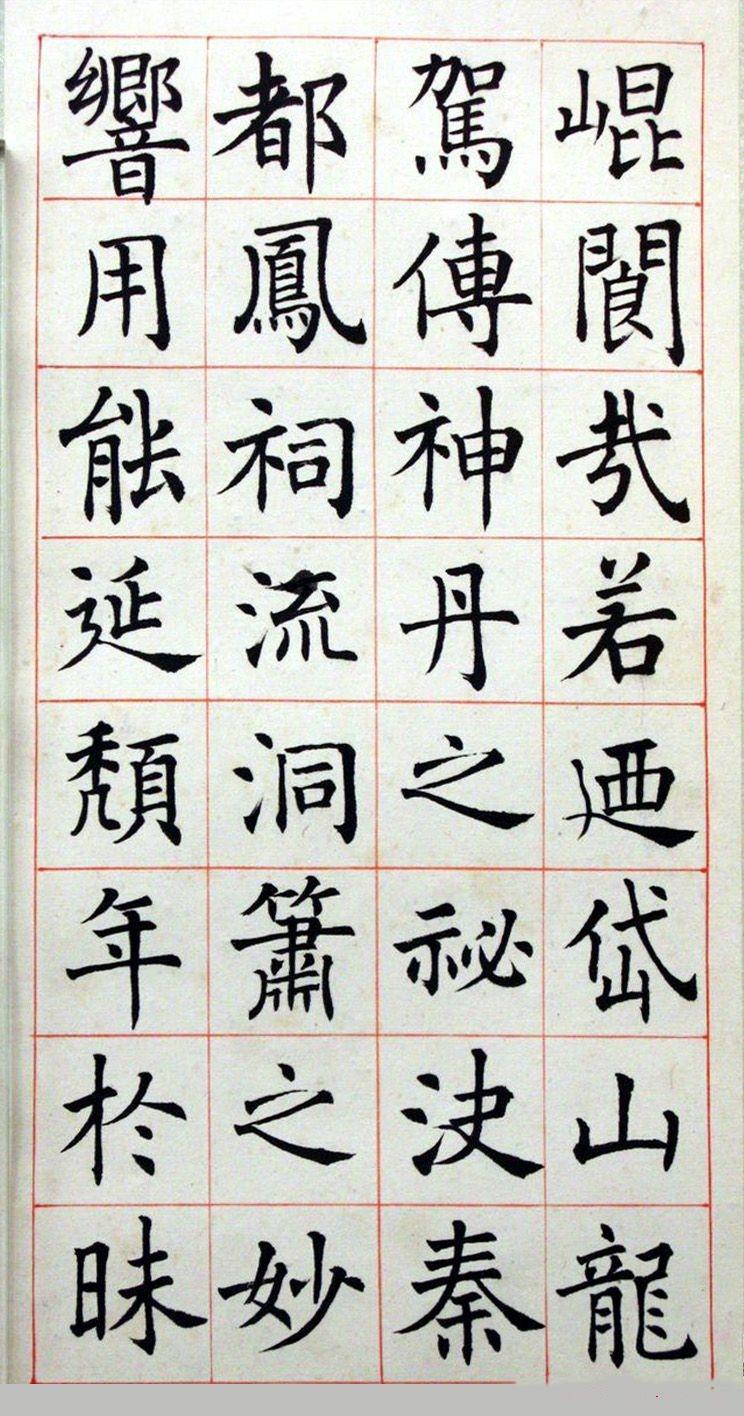 崐閬哉若迺岱山龍
駕傳神丹之祕決秦
都鳳祠流洞簫之妙
響用能延頹年於昧